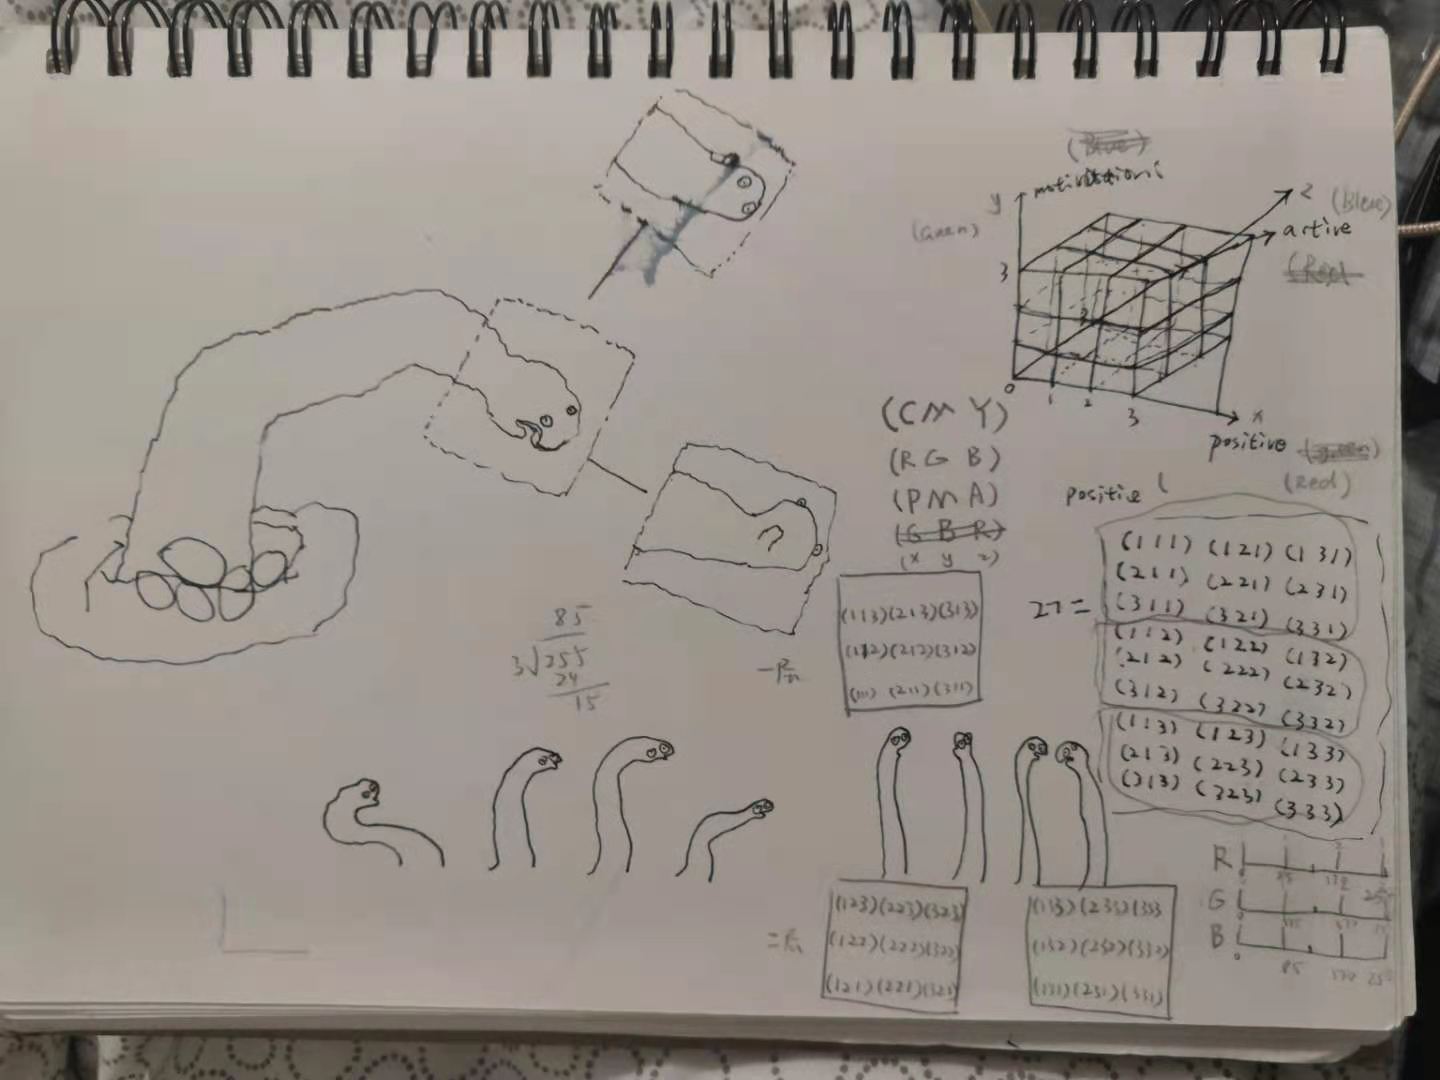 (Blue)
motivations
y
z
(Blue)
(Green)
active
(Red
3
2
0
1
2
3
x
positive
(green)
(Red)
(C M Y)
(R G B)
(P M A)
(G B R)
(x y z)
positie (
27=
(111) (121) (131)
(211) (221) (231)
(311) (321) (331)
(112) (122) (132)
(212) (222) (232)
(312) (322) (332)
(113) (123) (133)
(213) (223) (233)
(313) (323) (333)
(113)(213)(313)
(112)(212)(312)
(111) (211)(311)
85
3√255
24
15
(123)(223)(323)
(122)(222)(322)
(121)(221)(321)
(133)(233)(333
(132)(232)(332)
(131)(231)(331)
R
G
B
0
85
170
255